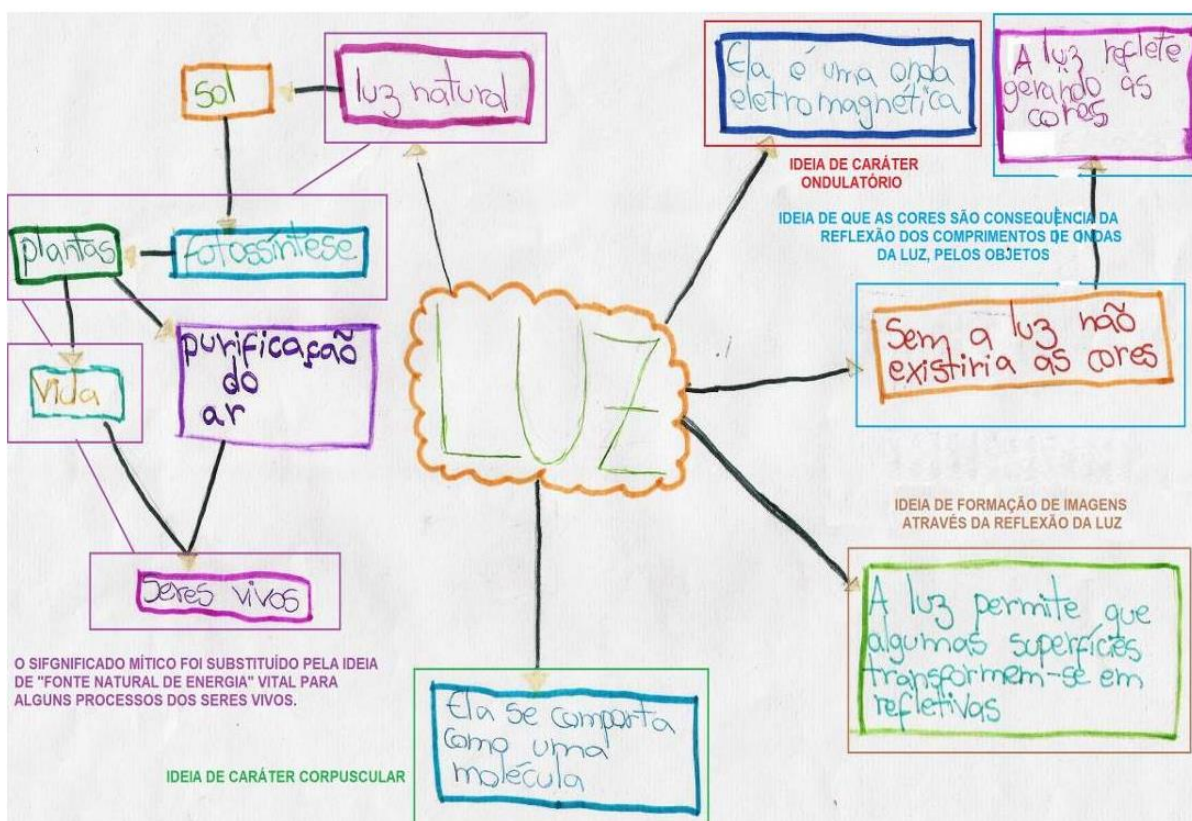 sol
luz natural
fotossíntese
plantas
vida
purificação
do
ar
seres vivos
O SIFGNIFICADO MÍTICO FOI SUBSTITUÍDO PELA IDEIA
DE "FONTE NATURAL DE ENERGIA" VITAL PARA
ALGUNS PROCESSOS DOS SERES VIVOS.
LUZ
Ela é uma onda
eletromagnética
IDEIA DE CARÁTER
ONDULATÓRIO
A luz reflete
gerando as
cores
IDEIA DE QUE AS CORES SÃO CONSEQUÊNCIA DA
REFLEXÃO DOS COMPRIMENTOS DE ONDAS
DA LUZ, PELOS OBJETOS
Sem a luz não
existiria as cores
IDEIA DE FORMAÇÃO DE IMAGENS
ATRAVÉS DA REFLEXÃO DA LUZ
A luz permite que
algumas superfícies
transformem-se em
refletivas
Ela se comporta
como uma
molécula
IDEIA DE CARÁTER CORPUSCULAR